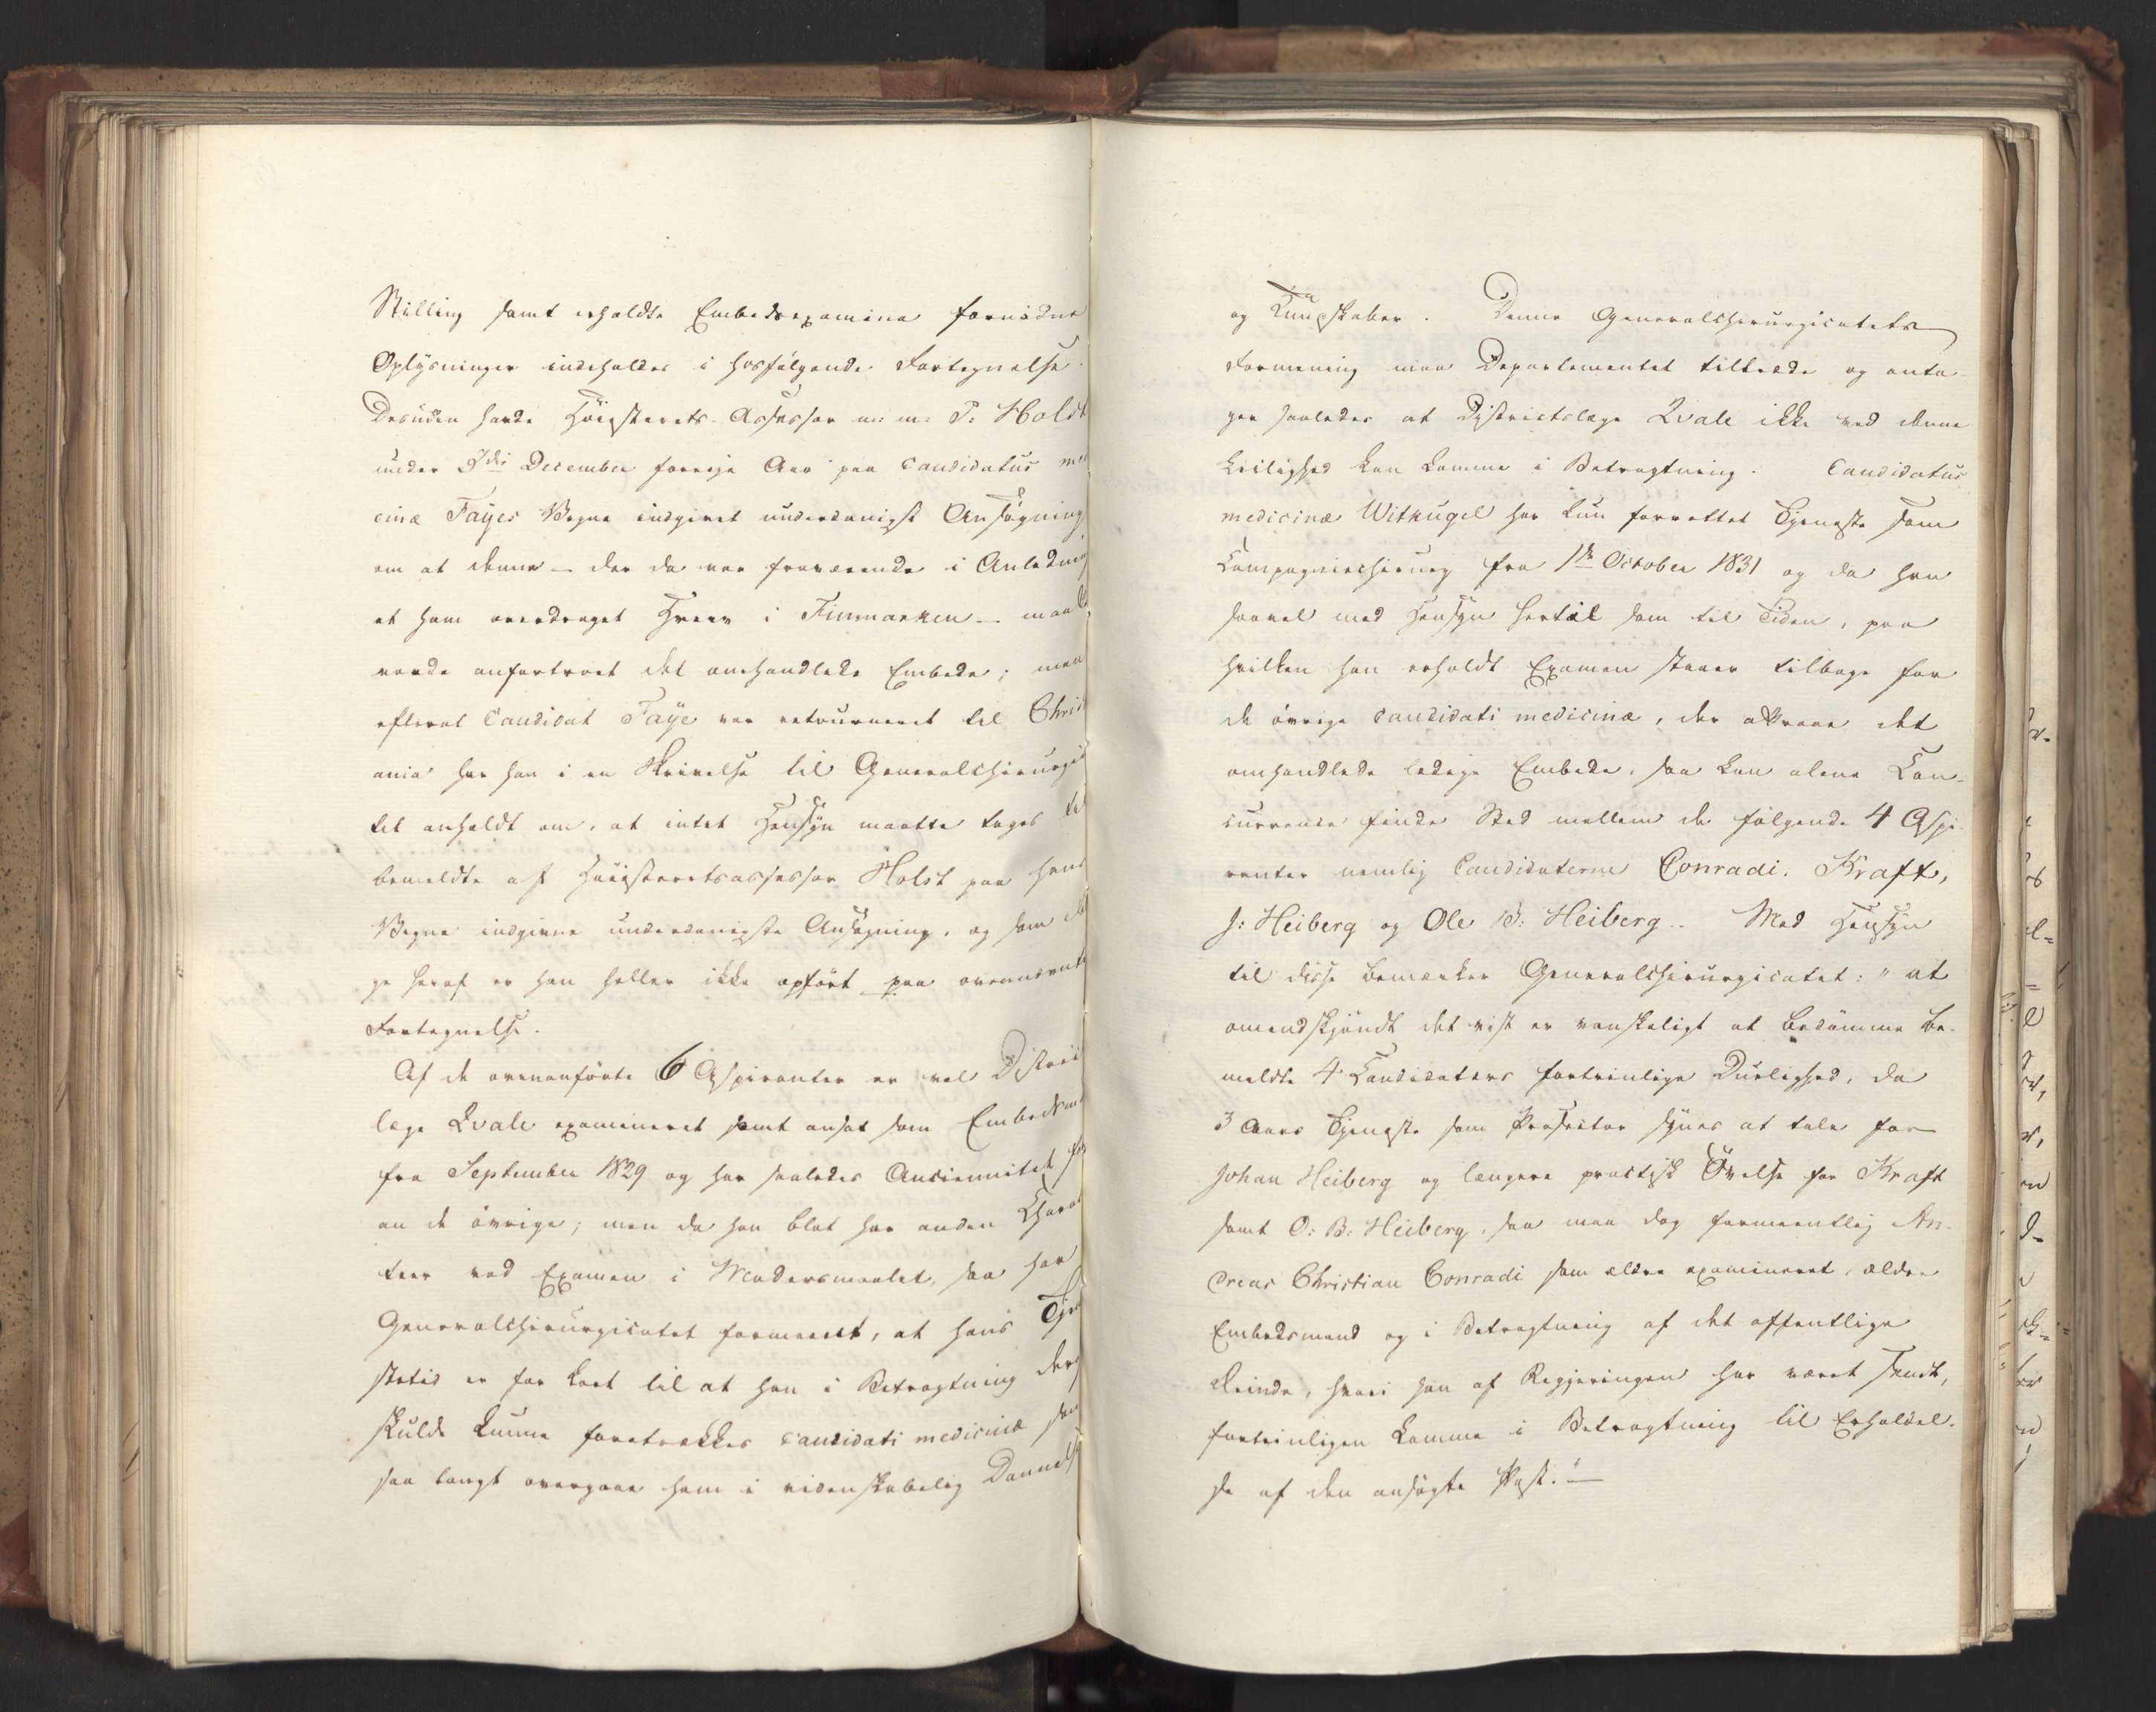 Stilling samt erholdte Embedsexamina fornødne
Oplysninger indeholdes i hosfølgende Fortegnelse.
Desuden havde Høiesterets-Assessor m: m: P: Holst
under 9de December forrige Aar paa Candidatus medi
cinæ Fayes Vegne indgivet underdanigst Ansøgning
om at denne – der da var fraværende i Anledning
et ham overdraget Hverv i Finmarken – maatte
vorde anfortroet det omhandlede Embede; men
efterat Candidat Faye var retourneret til Christi
ania har han i en Skrivelse til Generalchirurgica
tet anholdt om, at intet Hensyn maatte tages til
bemeldte af Høiesteretsassessor Holst paa hans
Vegne indgivne underdanigste Ansøgning, og som Føl
ge heraf er han heller ikke opført paa ovennævnte
Fortegnelse.
Af de ovenanførte 6 Aspiranter er vel District
læge Qvale examineret samt ansat som Embedsmand
fra September 1829 og har saaledes Anciennitet for
an de øvrige; men da han blot har anden Charac
teer ved Examen i Modersmaalet, saa har
Generalchirurgicatet formeent, at hans Tjene
stetid er for kort til at han i Betragtning deraf
skulde kunne foretrækkes candidati medicinæ som
saa langt overgaae ham i videnskabelig Dannelse
og Kundskaber. Denne Generalchirurgicatets
Formening maa Departementet tiltræde og anta-
ger saaledes at Districtslæge Qvale ikke ved denne
Leilighed kan komme i Betragtning. Candidatus
medicinæ Witkugel har kun forrettet Tjeneste som
Compagniechirurg fra 1de October 1831 og da han
saavel med Hensyn hertil som til Tiden, paa
hvilken han erholdt Examen staaer tilbage for
de øvrige candidati medicinæ, der attraae det
omhandlede ledige Embede, saa kan alene Con-
currence finde Sted mellem de følgende 4 Aspi-
ranter nemlig Candidaterne Conradi, Kraft,
J: Heiberg og Ole B: Heiberg. Med Hensyn
til disse bemærker Generalchirurgicatet: "at
omendskjøndt det vist er vanskeligt at bedømme be-
meldte 4 Candidaters fortrinlige Duelighed, da
3 Aars Tjeneste som Prosector synes at tale for
Johan Heiberg og længere practisk Øvelse for Kraft
samt O: B: Heiberg, saa maa dog formeentlig An-
dreas Christian Conradi som ældre examineret, ældre
Embedsmand og i Betragtning af det offentlige
Ærinde, hvori han af Regjeringen har været sendt,
fortrinligen komme i Betragtning til Erholdel-
se af den ansøgte Post."—